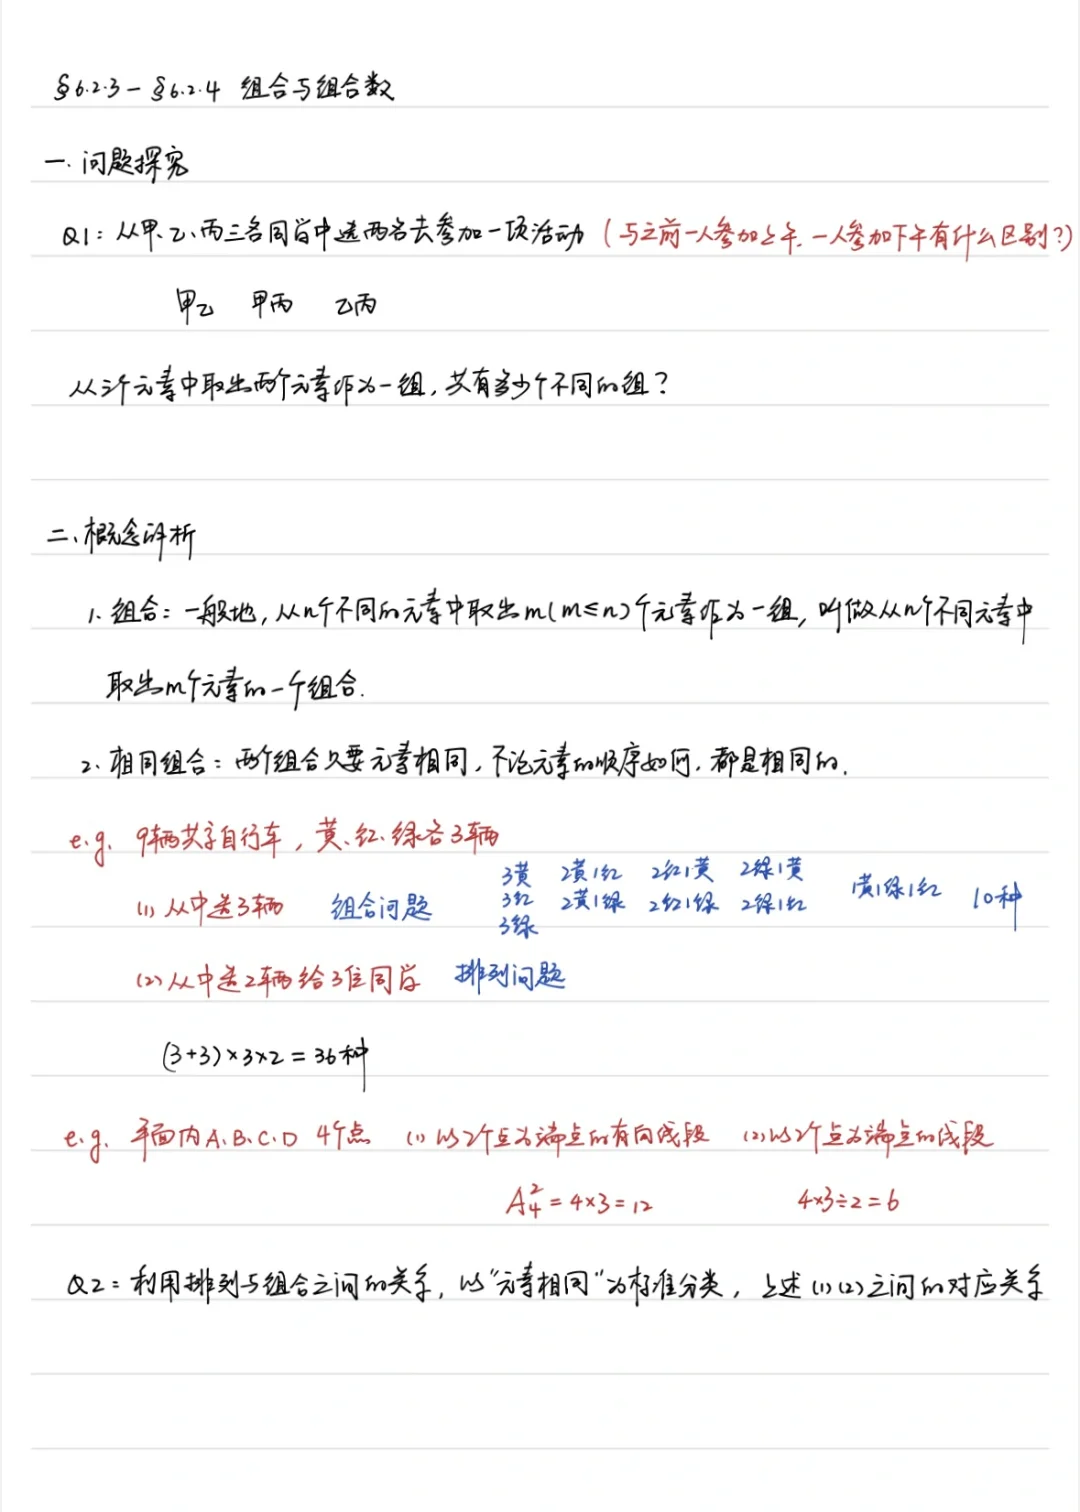 §6.2.3-§6.2.4 组合与组合数
一.问题探究
Q1:从甲、乙、丙三名同学中选两名去参加一项活动(与之前一人参加上午.一人参加下午有什么区别?)
甲乙 甲丙 乙丙
从3个元素中取出两个元素作为一组,共有多少个不同的组?
二、概念评析
1.组合:一般地,从n个不同的元素中取出m(m≤n)个元素作为一组,叫做从n个不同元素中
取出m个元素的一个组合.
2、相同组合:两个组合只要元素相同,不论元素的顺序如何,都是相同的.
e.g. 9辆共享自行车,黄、红、绿各3辆
3黄 2黄1红 2红1黄 2绿1黄
(1)从中选3辆 组合问题 3红 2黄1绿 2红1绿 2绿1红 1黄1绿1红 10种
3绿
(2)从中选2辆给3位同学 排列问题
(3+3)×3×2=36种
e.g. 平面内A、B、C、D 4个点 (1)以2个点为端点的有向线段 (2)以2个点为端点的线段
A₄²=4×3=12 4×3÷2=6
Q2:利用排列与组合之间的关系,以"元素相同"为标准分类,上述(1)(2)之间的对应关系